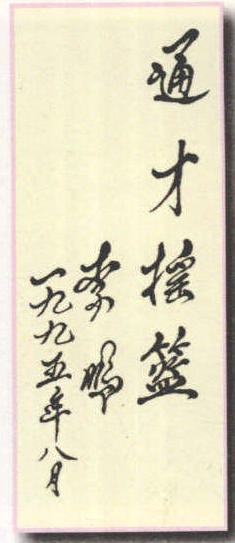 通才摇篮
李鹏
一九九五年八月